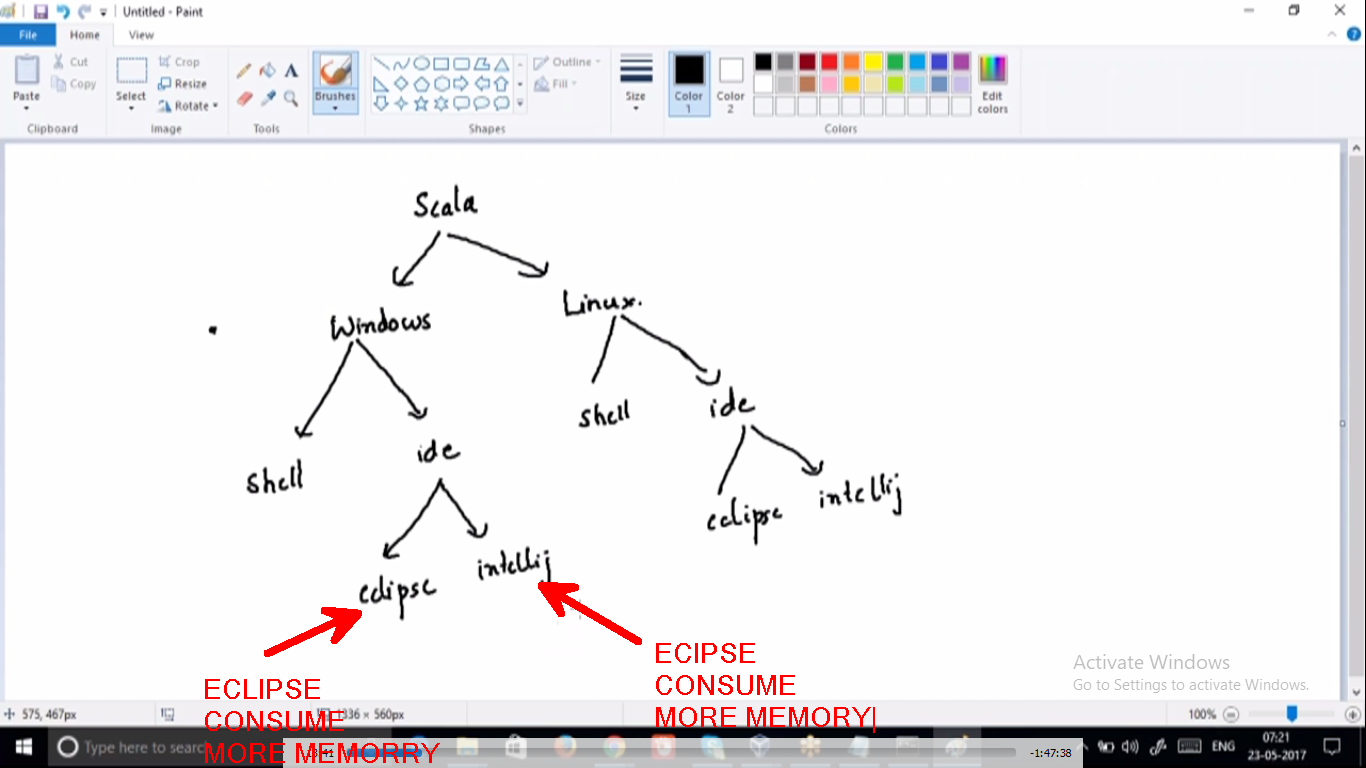 Untitled - Paint
File
Home
View
Paste
Cut
Copy
Clipboard
Select
Crop
Resize
Rotate
Image
Tools
Brushes
Shapes
Outline
Fill
Size
Color 1
Color 2
Edit colors
Colors
Scala
Windows
Linux.
shell
ide
shell
ide
eclipse
intellij
eclipse
intellij
ECLIPSE
CONSUME
MORE MEMORRY
ECIPSE
CONSUME
MORE MEMORY
Activate Windows
Go to Settings to activate Windows.
575, 467px
1336 × 560px
100%
Type here to searc
-1:47:38
ENG
07:21
23-05-2017